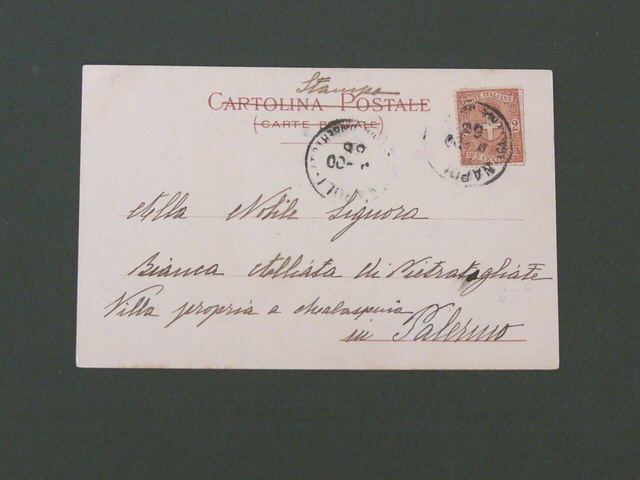 Stampe
CARTOLINA POSTALE
(CARTE POSTALE)
NAPOLI
POSTE ITALIANE
2
NAPOLI
Alla Nobile Signora
Bianca Alliata di Pietratagliata
Villa propria a Malaspina
in Palermo